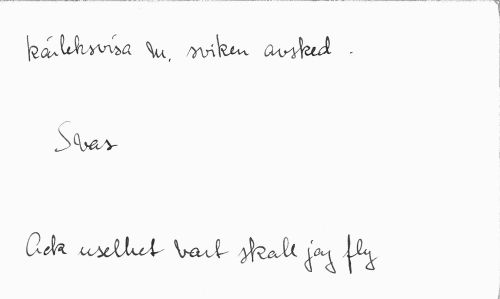 kärleksvisa m. sviken avsked.
Svar
Ack uselhet vart skall jag fly